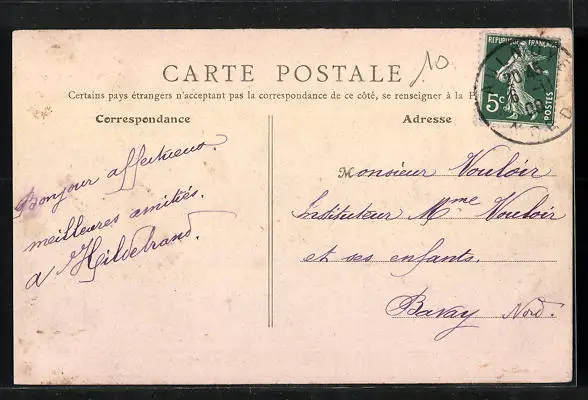 10
CARTE POSTALE
Certains pays étrangers n'acceptant pas la correspondance de ce côté, se renseigner à la
Correspondance
Bonjour affectueux.
meilleures amitiés.
Hildebrand.
Adresse
Monsieur Vouloir
Instituteur Mme Vouloir
et ses enfants.
Bavay Nord.
REPUBLIQUE FRANÇAISE
5c
POSTES
09
NORD